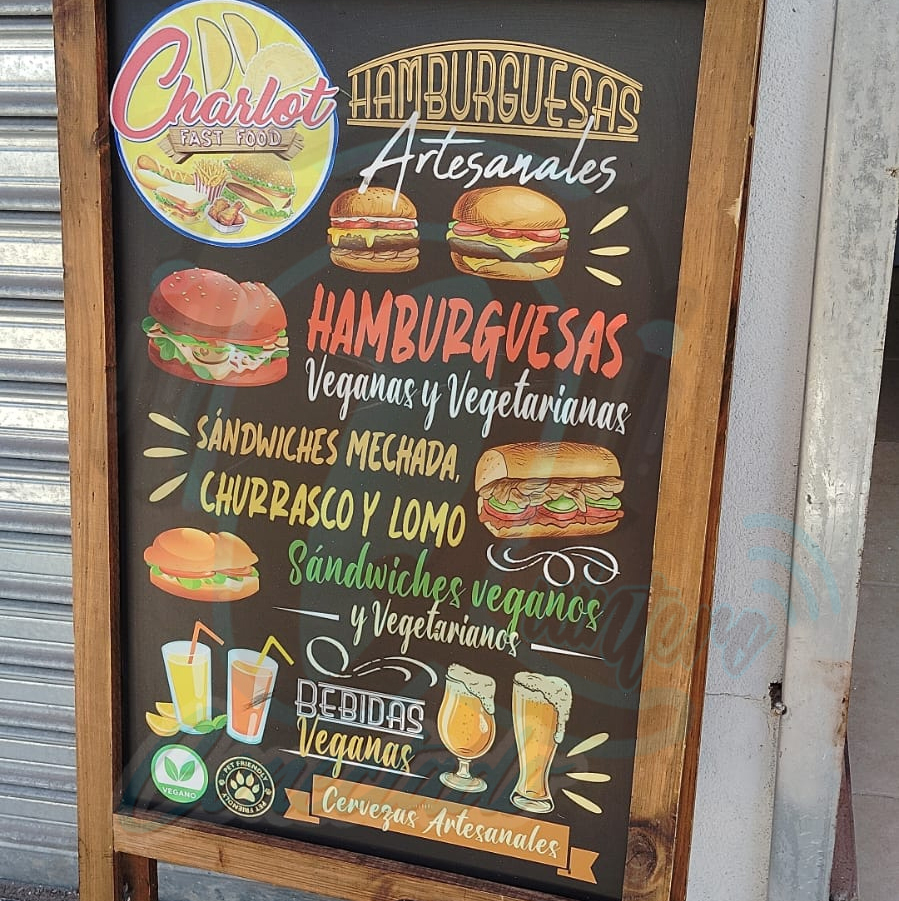 Charlot
FAST FOOD
HAMBURGUESAS
Artesanales
HAMBURGUESAS
Veganas y Vegetarianas
SÁNDWICHES MECHADA,
CHURRASCO Y LOMO
Sándwiches veganos
y Vegetarianos
BEBIDAS
Veganas
VEGANO
PET FRIENDLY
PET FRIENDLY
Cervezas Artesanales